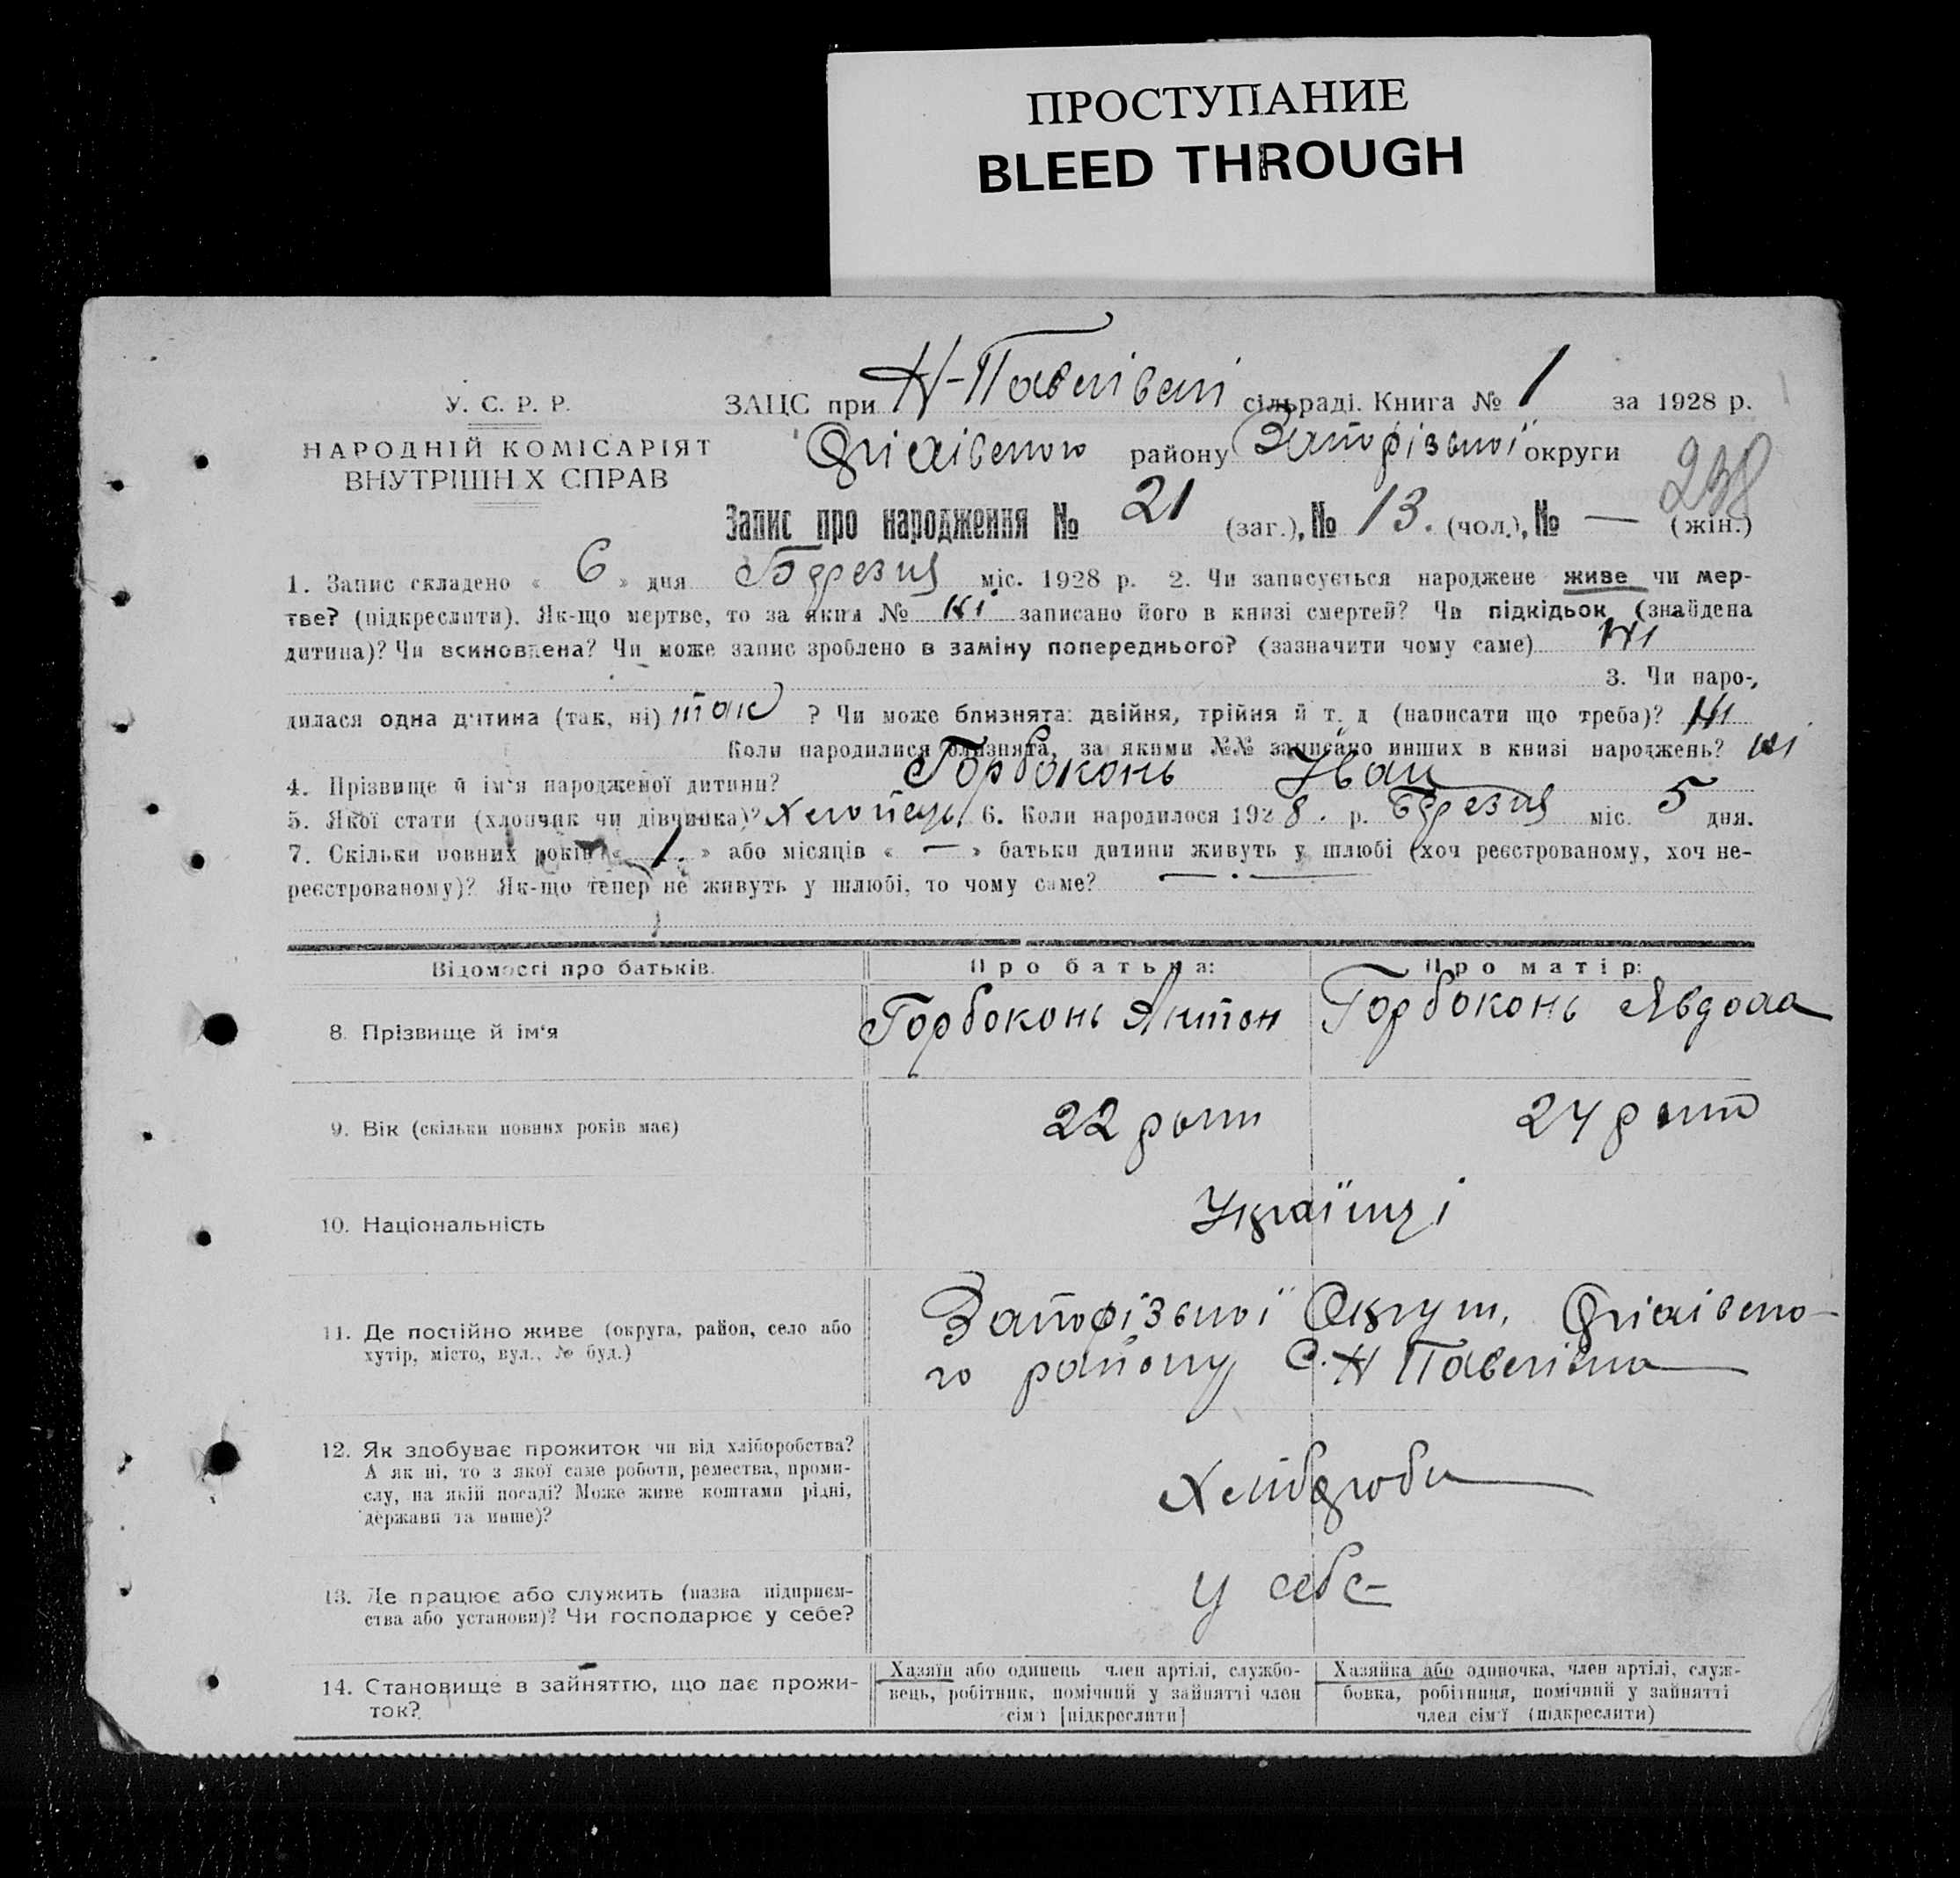 ПРОСТУПАНИЕ
BLEED THROUGH
У. С. Р. Р.
НАРОДНІЙ КОМІСАРІЯТ
ВНУТРІШН Х СПРАВ
ЗАЦС при Н-Павлівскі сільраді. Книга № 1 за 1928 р.
району Запорізької округи
238
Запис про народження № 21 (заг.), № 13. (чол.), № — (жін.)
1. Запис складено « 6 » дня Березня міс. 1928 р. 2. Чи записується народжене живе чи мер-
тве? (підкреслити). Як-що мертве, то за яким № ні записано його в книзі смертей? Чи підкідьок (знайдена
дитина)? Чи всиновлена? Чи може запис зроблено в заміну попереднього? (зазначити чому саме) ні
3. Чи наро-
дилася одна дитина (так, ні) так ? Чи може близнята: двійня, трійня й т. д (написати що треба)? ні
Коли народилися близнята, за якими №№ записано инших в книзі народжень? ні
4. Прізвище й ім'я народженої дитини? Горбоконь Іван
5. Якої стати (хлопчик чи дівчинка)? Хлопець 6. Коли народилося 1928. р. Березня міс. 5 дня.
7. Скільки повних років « 1. » або місяців « — » батьки дитини живуть у шлюбі (хоч реєстрованому, хоч не-
реєстрованому)? Як-що тепер не живуть у шлюбі, то чому саме? — . —
Відомості про батьків.
Про батька:
Про матір:
8. Прізвище й ім'я
Горбоконь Антон
Горбоконь Явдоха
9. Вік (скільки повних років має)
22 рокт
24 рокт
10. Національність
Українці
11. Де постійно живе (округа, район, село або
хутір, місто, вул., № буд.)
Запорізької Округи,
го району С. Н Павлівка
12. Як здобуває прожиток чи від хліборобства?
А як ні, то з якої саме роботи, ремества, проми-
слу, на якій посаді? Може живе коштами рідні,
держави та инше)?
Хлібороби
13. Де працює або служить (назва підприєм-
ства або установи)? Чи господарює у себе?
у себе
14. Становище в зайняттю, що дає прожи-
ток?
Хазяїн або одинець член артілі, службо-
вець, робітник, помічний у зайнятті член
сім'ї [підкреслити]
Хазяйка або одиночка, член артілі, служ-
бовка, робітниця, помічний у зайнятті
член сім'ї (підкреслити)